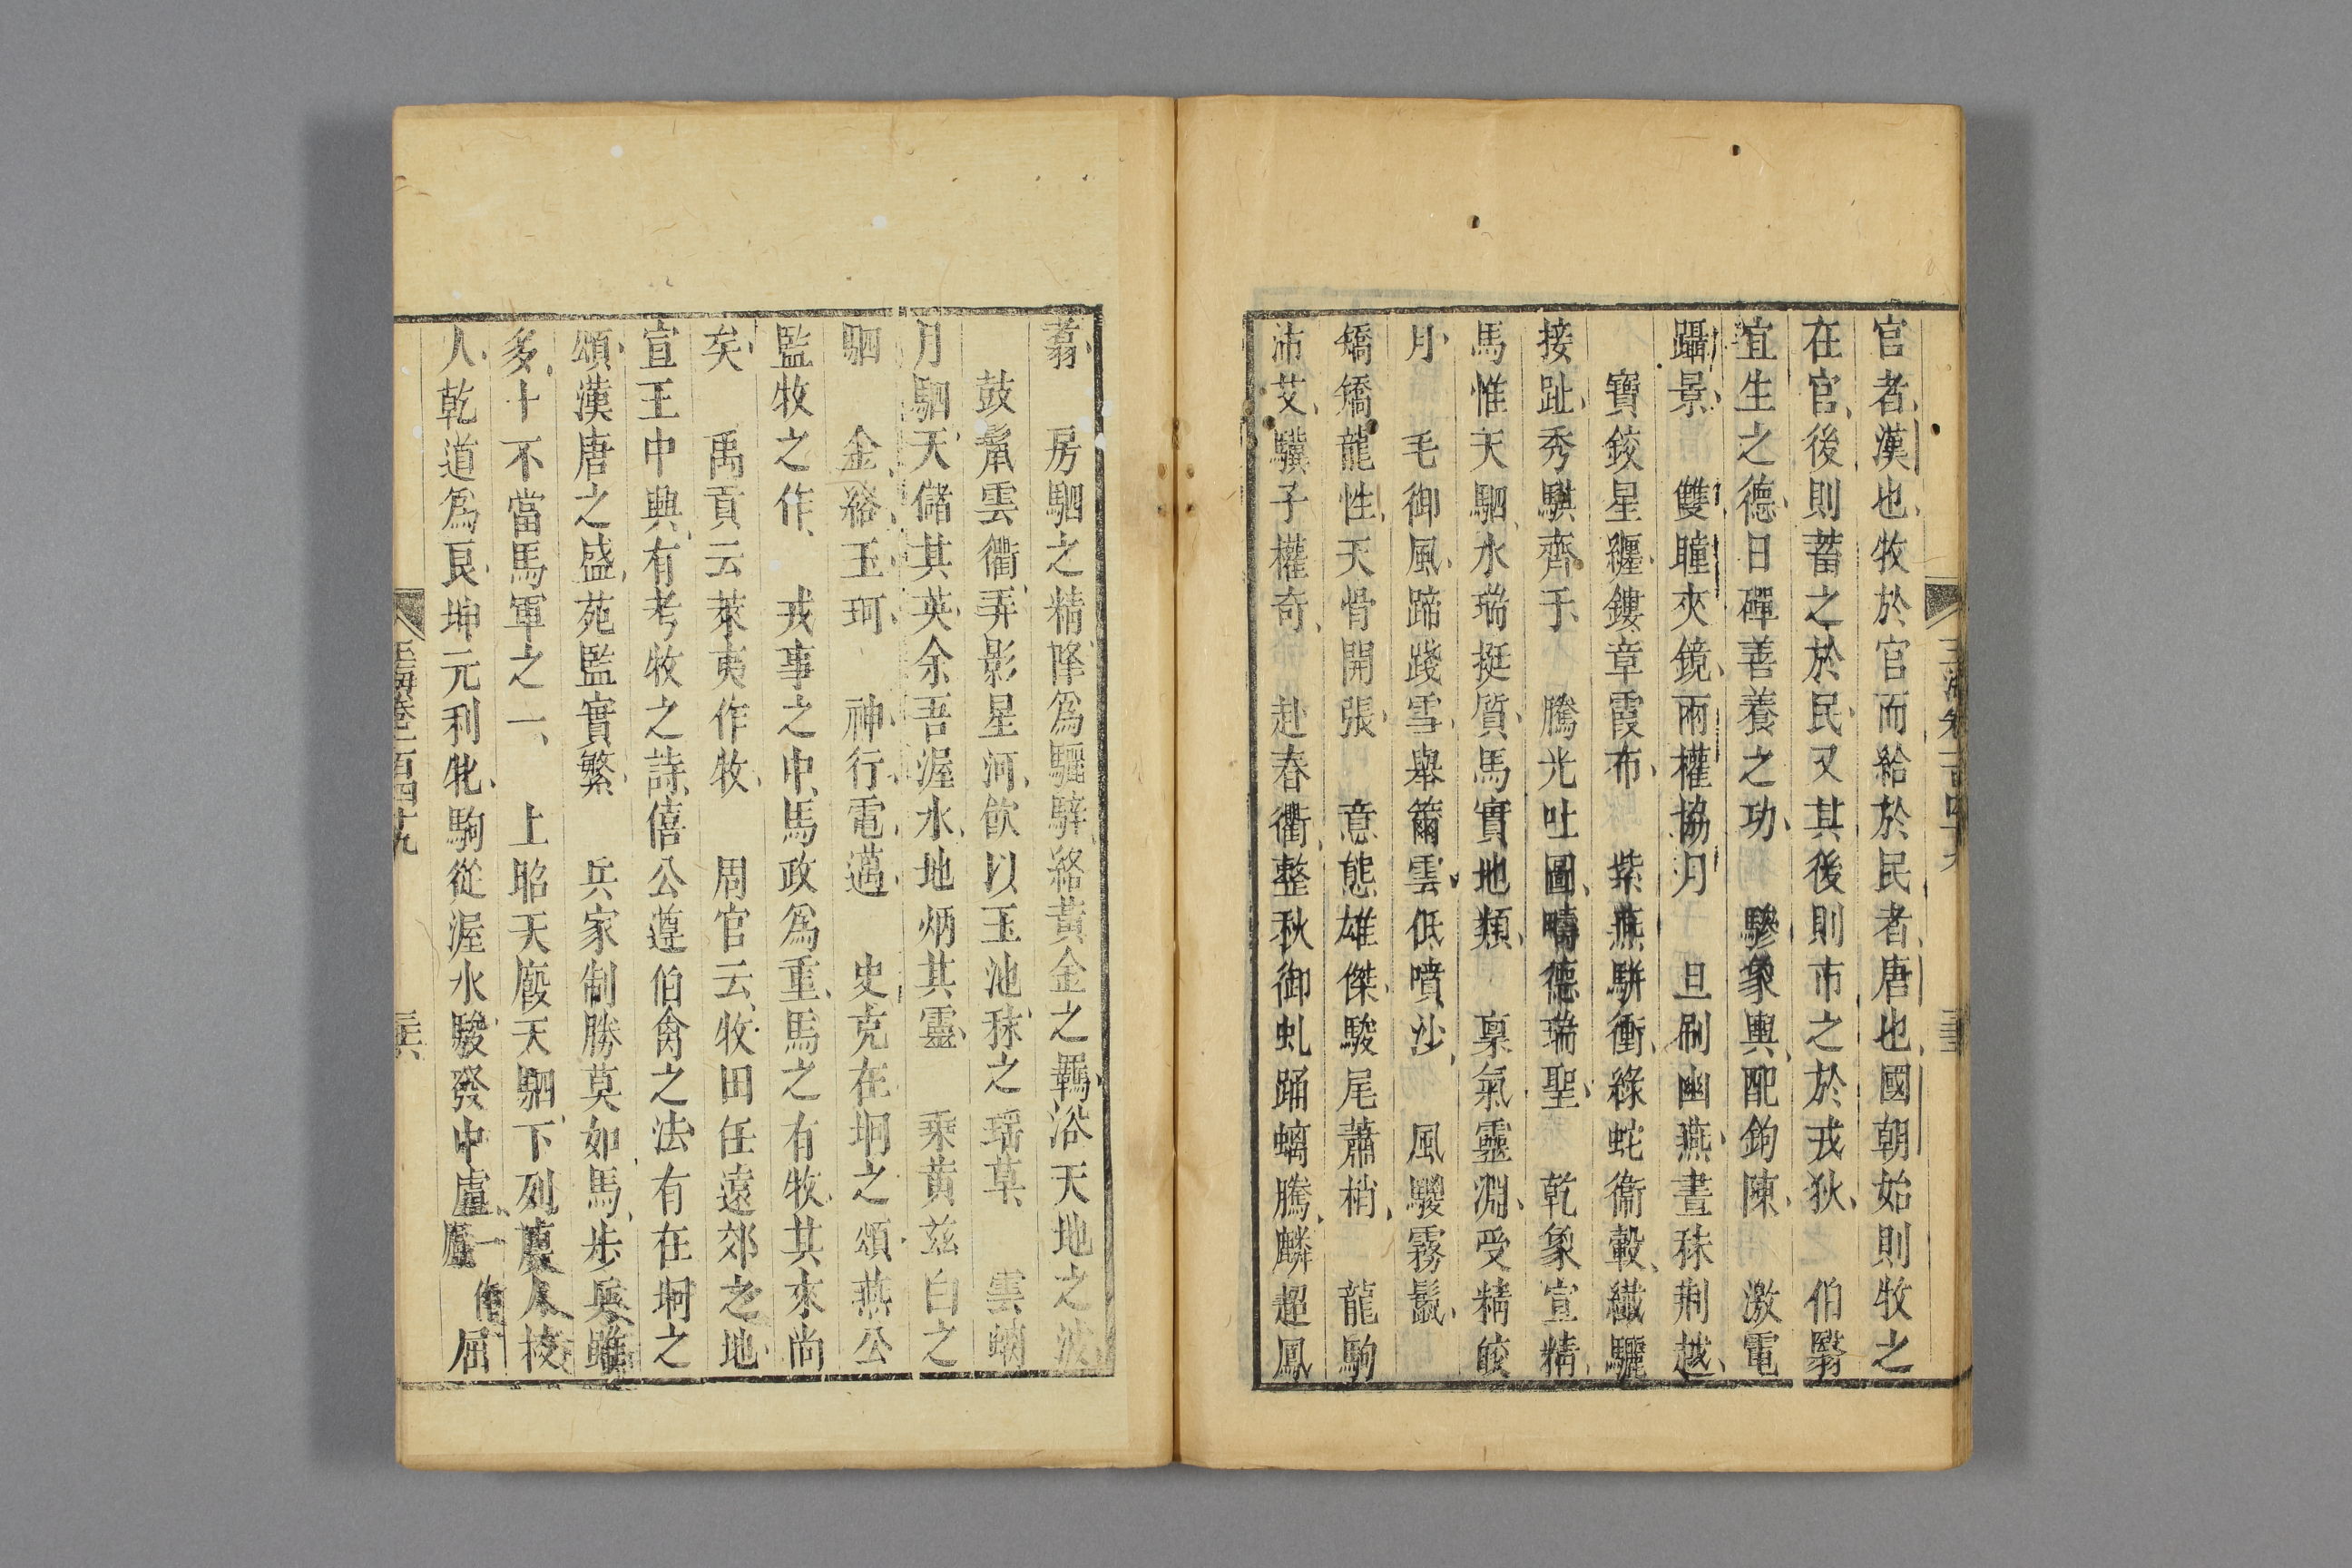 官者漢也牧於官而給於民者唐也國朝始則牧之
在官後則蓄之於民又其後則市之於戎狄　伯翳
宜生之德日磾善養之功　驂象輿配鉤陳　激電
躡景　雙瞳夾鏡兩權協月　旦刷幽燕晝秣荆越
寶鉸星纏鏤章霞布　紫燕騈衡綠蛇衞轂纎驪
接趾秀騏齊于　騰光吐圖疇德瑞聖　乾象宣精
馬惟天駟水瑞挺質馬實地類　稟氣靈淵受精皎
月　毛御風蹄踐雪舉籋雲低噴沙　風騣霧鬛
矯矯龍性天骨開張　意態雄傑駿尾蕭梢　龍駒
沛艾驥子權奇　赴春衢整秋御虬踊螭騰麟超鳳
翥　房駟之精降爲驪騂絡黃金之羈浴天地之波
鼓鬛雲衢弄影星河飮以玉池秣之瑶草　雲螭
月駟天儲其英余吾渥水地炳其靈　乘黃兹白之
駟　金絡玉珂　神行電邁　史克在坰之頌燕公
監牧之作　戎事之中馬政爲重馬之有牧其來尚
矣　禹貢云萊夷作牧　周官云牧田任遠郊之地
宣王中興有考牧之詩僖公遵伯禽之法有在坰之
頌漢唐之盛苑監實繁　兵家制勝莫如馬步兵雖
多十不當馬軍之一　上昭天廄天駟下列人校
人乾道爲艮坤元利牝駒從渥水駿發中盧一作廬屈
玉海卷一百四十九